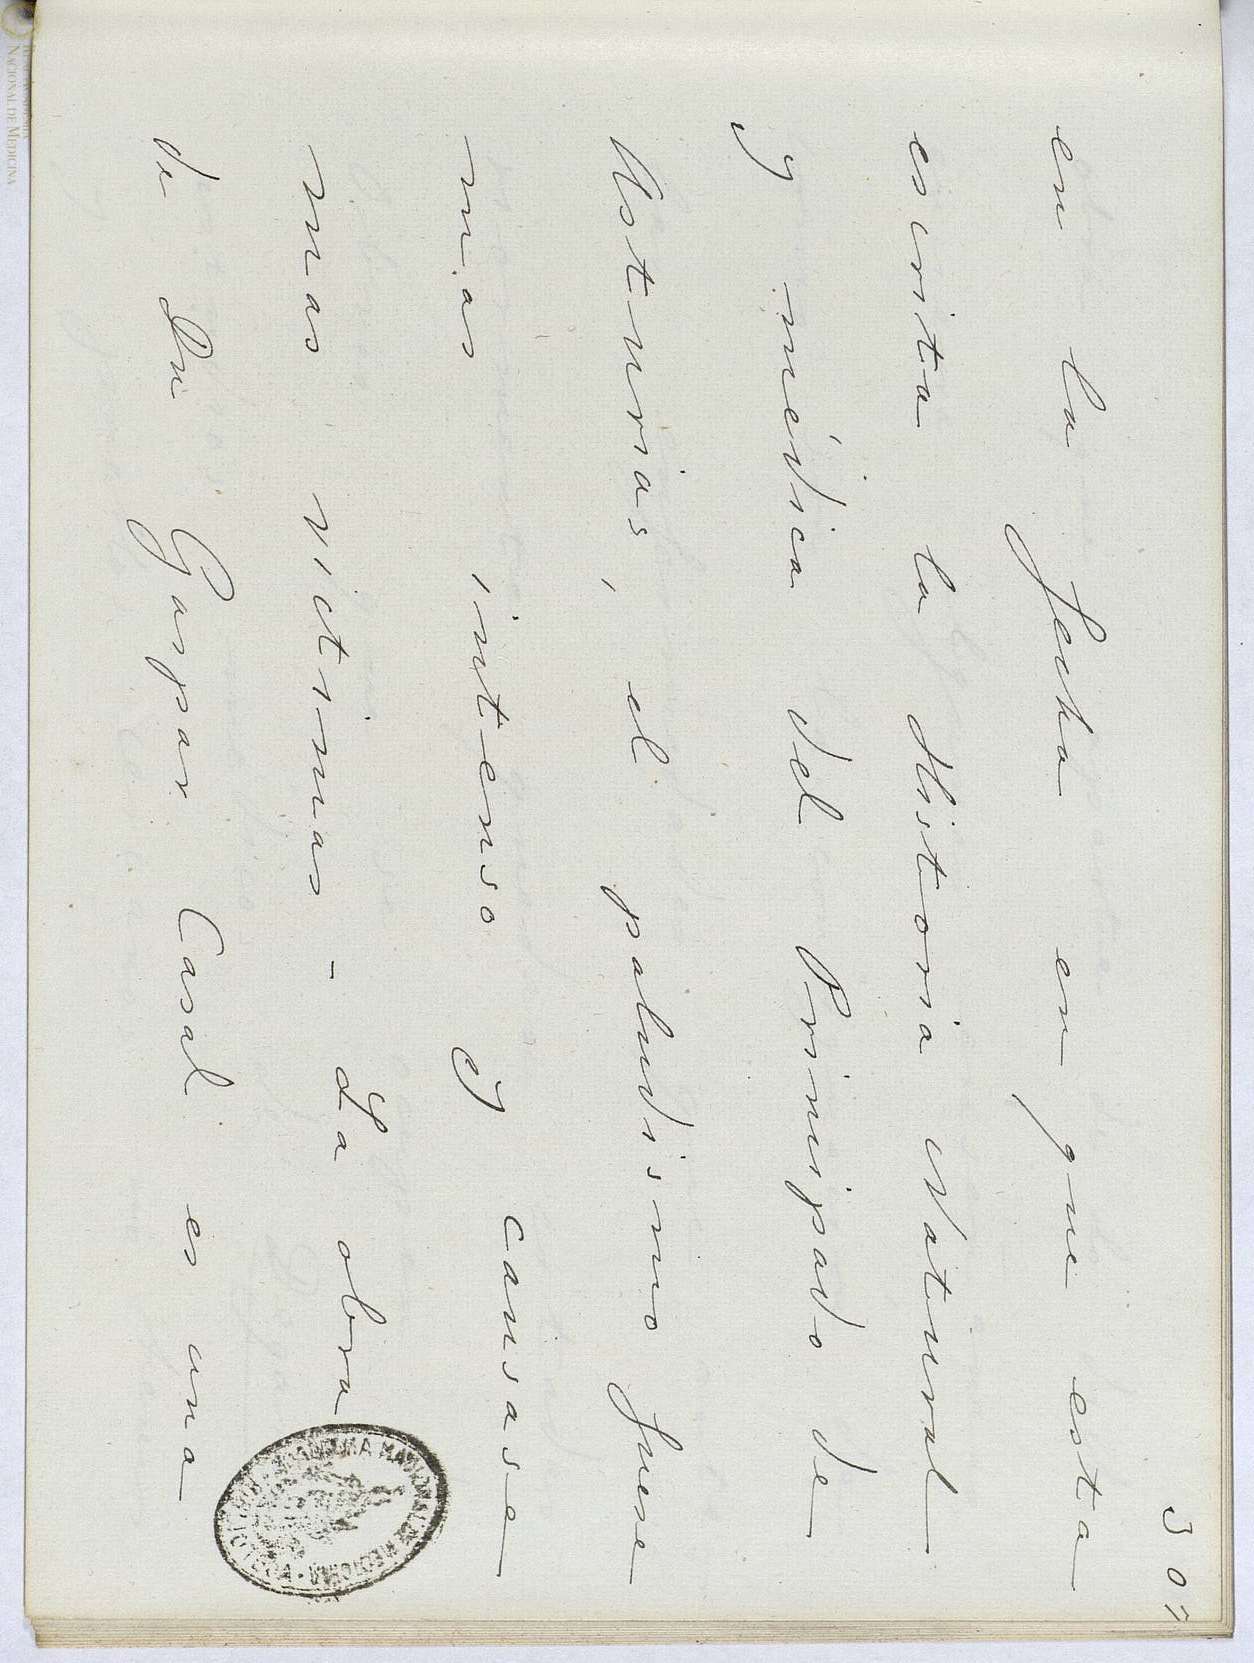 307
en la fecha en que esta
escrita la Historia Natural
y médica del Principado de
Asturias, el paludismo fuese
mas intenso y causase
mas victimas - La obra
de Dn Gaspar Casal es una
REAL ACADEMIA
NACIONAL DE MEDICINA